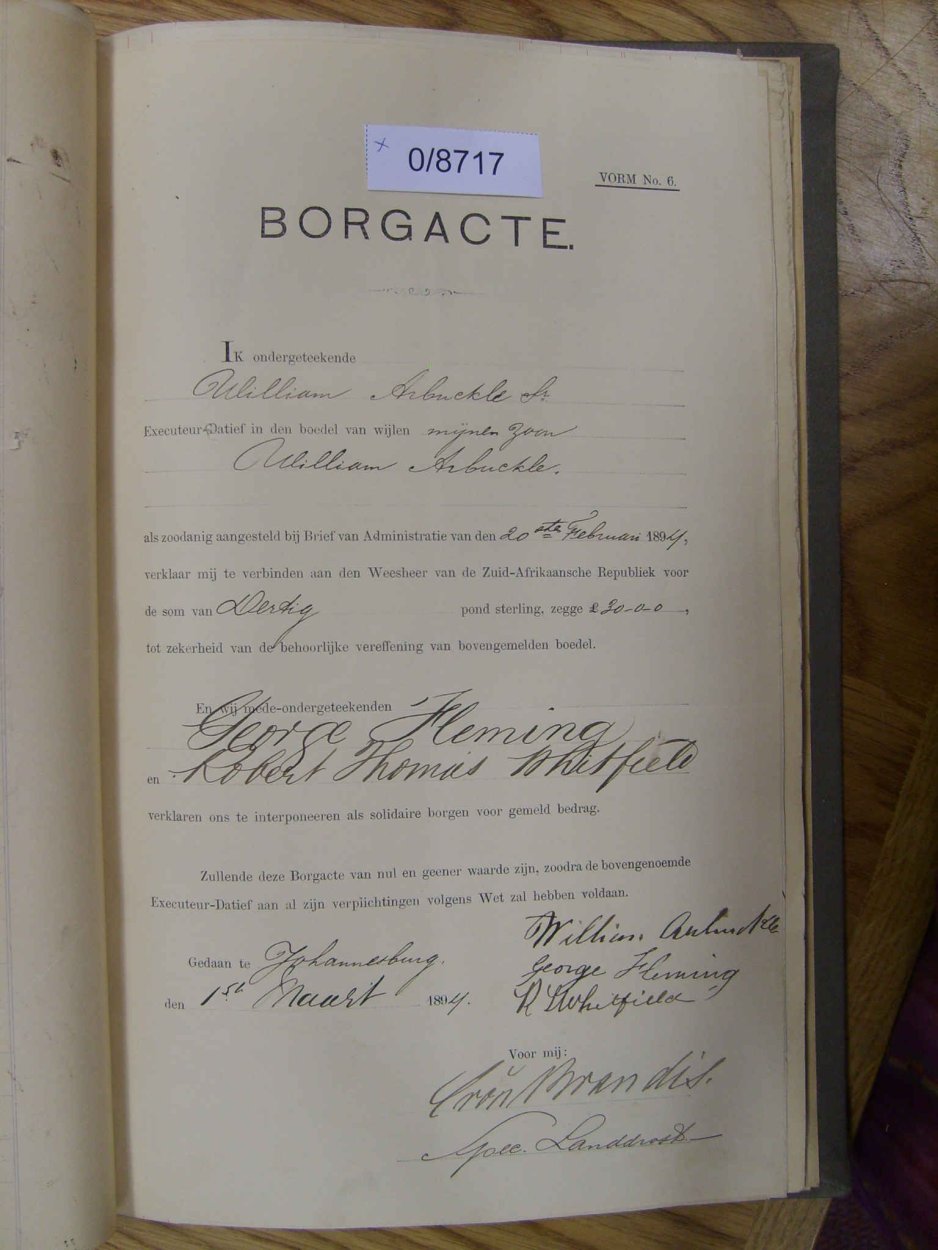 x 0/8717
VORM No. 6.
BORGACTE.
IK ondergeteekende
William Arbuckle Sr
Executeur-Datief in den boedel van wijlen mijnen zoon
William Arbuckle.
als zoodanig aangesteld bij Brief van Administratie van den 20ste Februari 1894,
verklaar mij te verbinden aan den Weesheer van de Zuid-Afrikaansche Republiek voor
de som van Dertig pond sterling, zegge £30-0-0,
tot zekerheid van de behoorlijke vereffening van bovengemelden boedel.
En wij mede-ondergeteekenden
George Fleming
en Robert Thomas Whitfield
verklaren ons te interponeeren als solidaire borgen voor gemeld bedrag.
Zullende deze Borgacte van nul en geener waarde zijn, zoodra de bovengenoemde
Executeur-Datief aan al zijn verplichtingen volgens Wet zal hebben voldaan.
William Arbuckle
Gedaan te Johannesburg.
George Fleming
den 1st Maart 1894.
R T Whitfield
Voor mij:
Brandis.
Spec. Landdrost